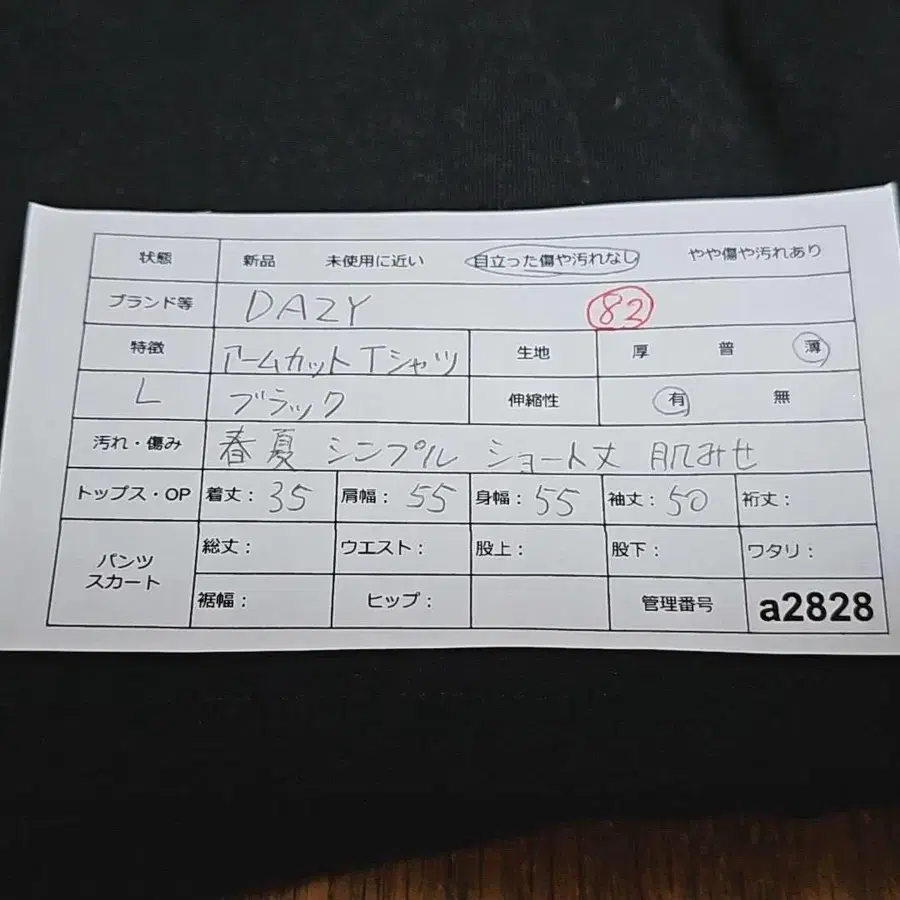 状態 新品 未使用に近い 目立った傷や汚れなし やや傷や汚れあり
ブランド等 DAZY 82
特徴 アームカットTシャツ 生地 厚 普 薄
L ブラック 伸縮性 有 無
汚れ・傷み 春夏 シンプル ショート丈 肌みせ
トップス・OP 着丈: 35 肩幅: 55 身幅: 55 袖丈: 50 裄丈:
パンツ スカート 総丈: ウエスト: 股上: 股下: ワタリ:
裾幅: ヒップ: 管理番号 a2828